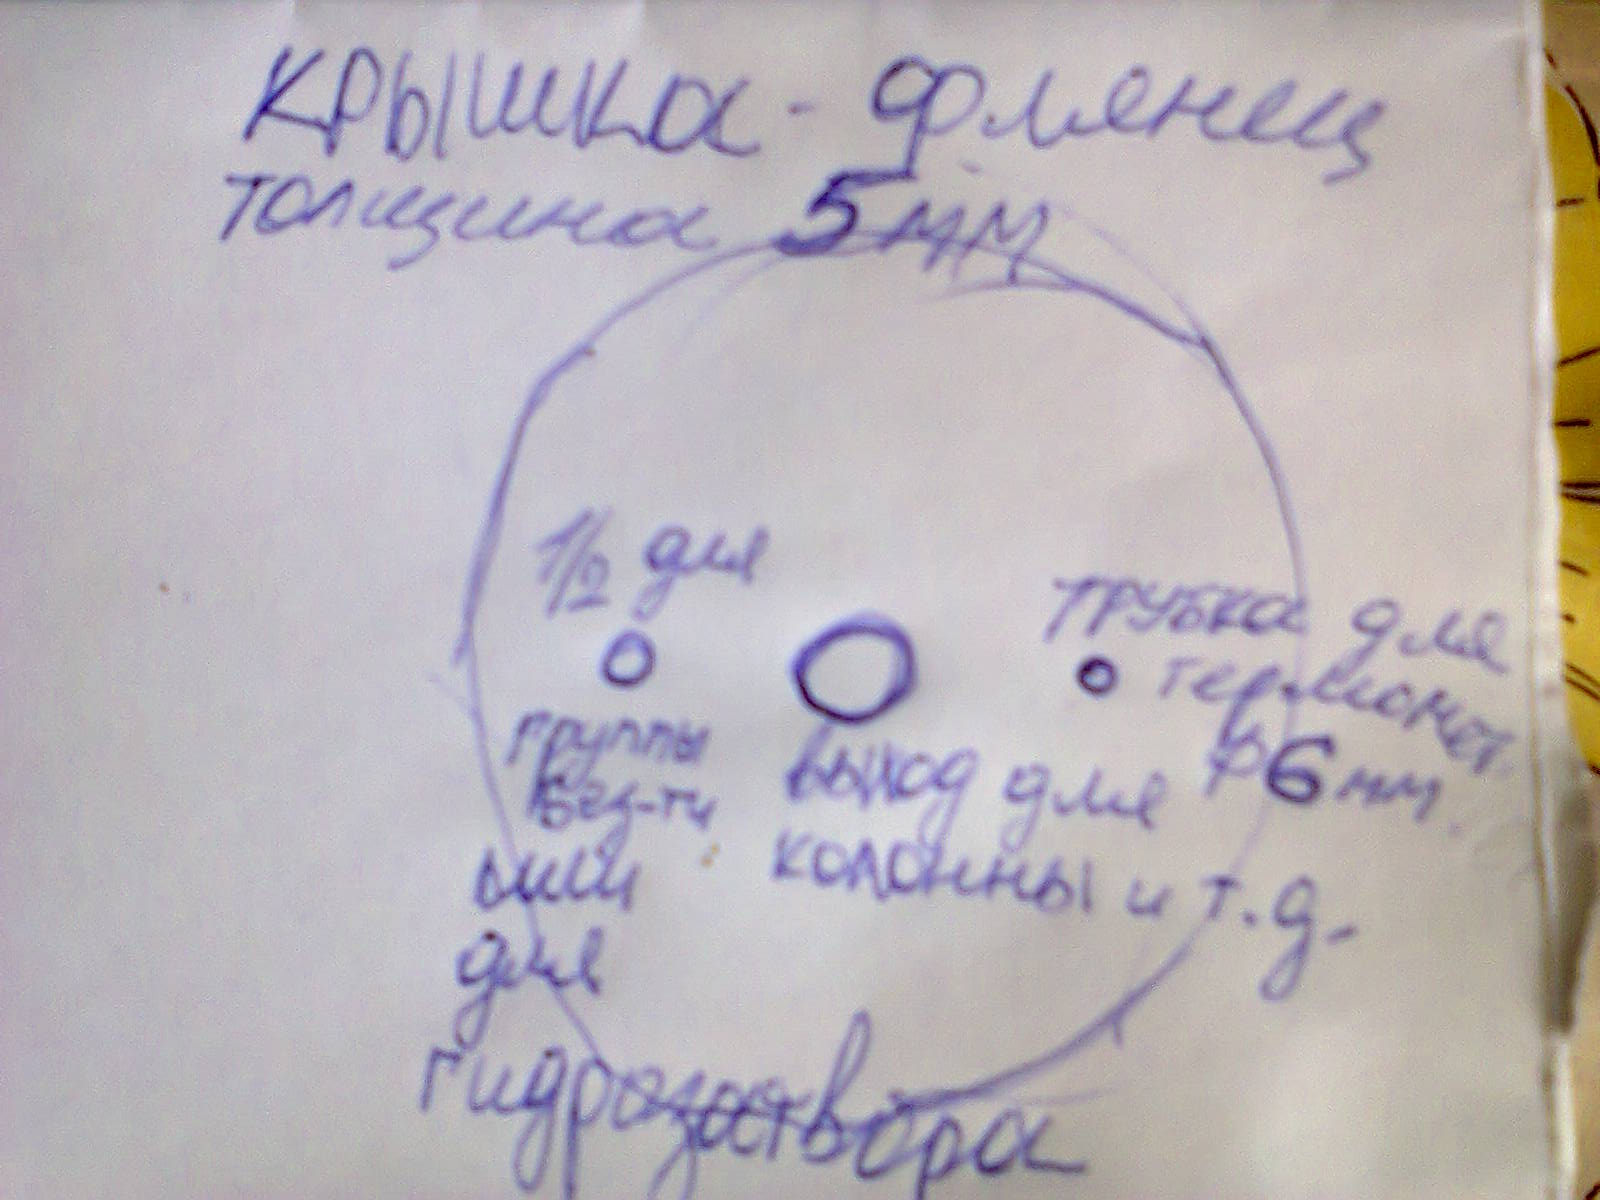 крышка - флянец
толщина 5мм
1/2 для
группы
без-ти
или
для
гидрозатвора
выход для
колонны и т.д.
трубка для
термомет.
φ6мм.